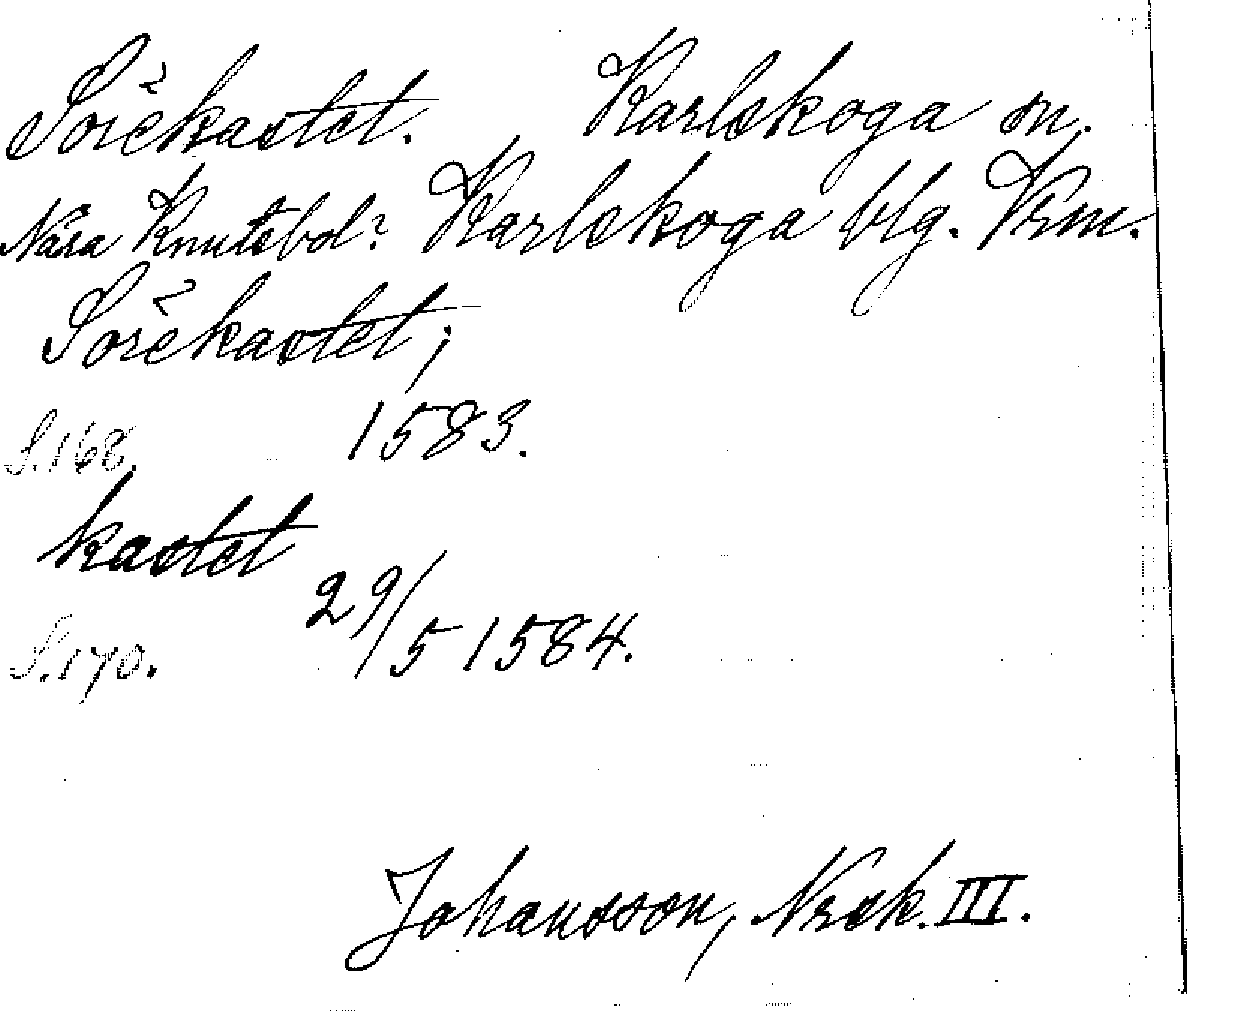 Sořekastet. Karlskoga sn.
Nära Knutsbol? Karlskoga blg. Vrm.
Sořekastet;
S. 168. 1583.
kastet
29/5 1584.
S. 170.
Johansson, Nrsk. III.